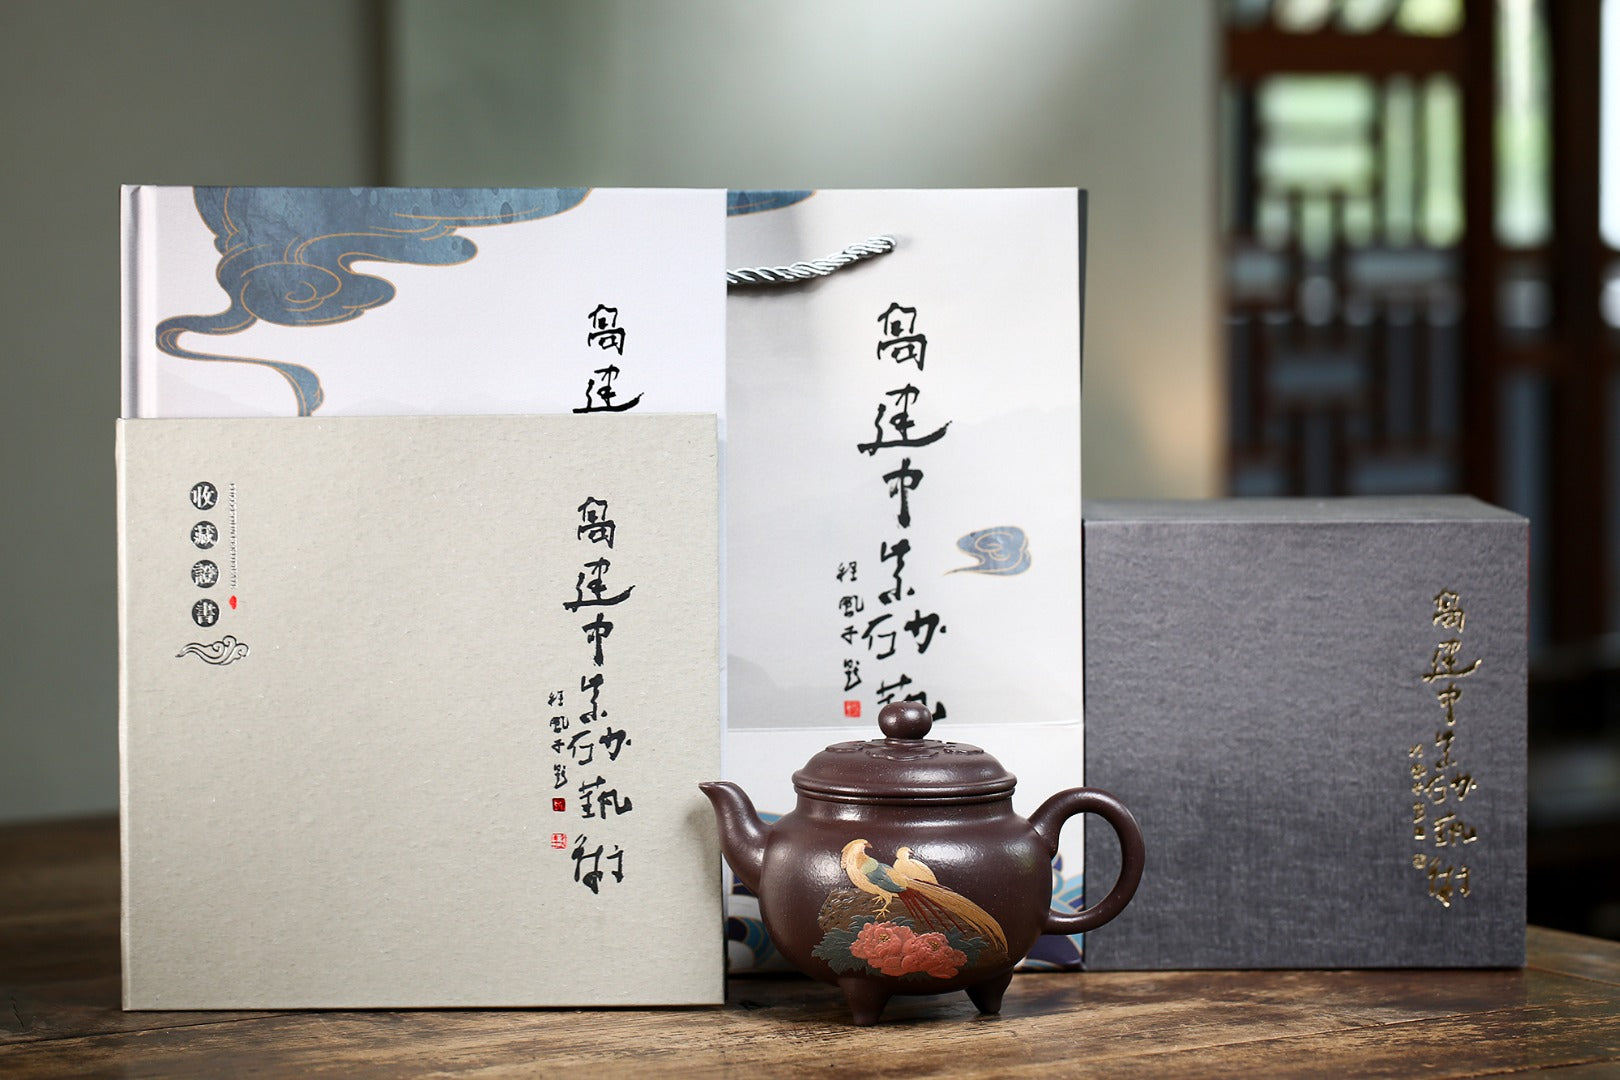 高建
收藏證書
高建中紫砂藝術
程風子題
高建中紫砂藝
程風子題
高建中紫砂藝術
程風子題